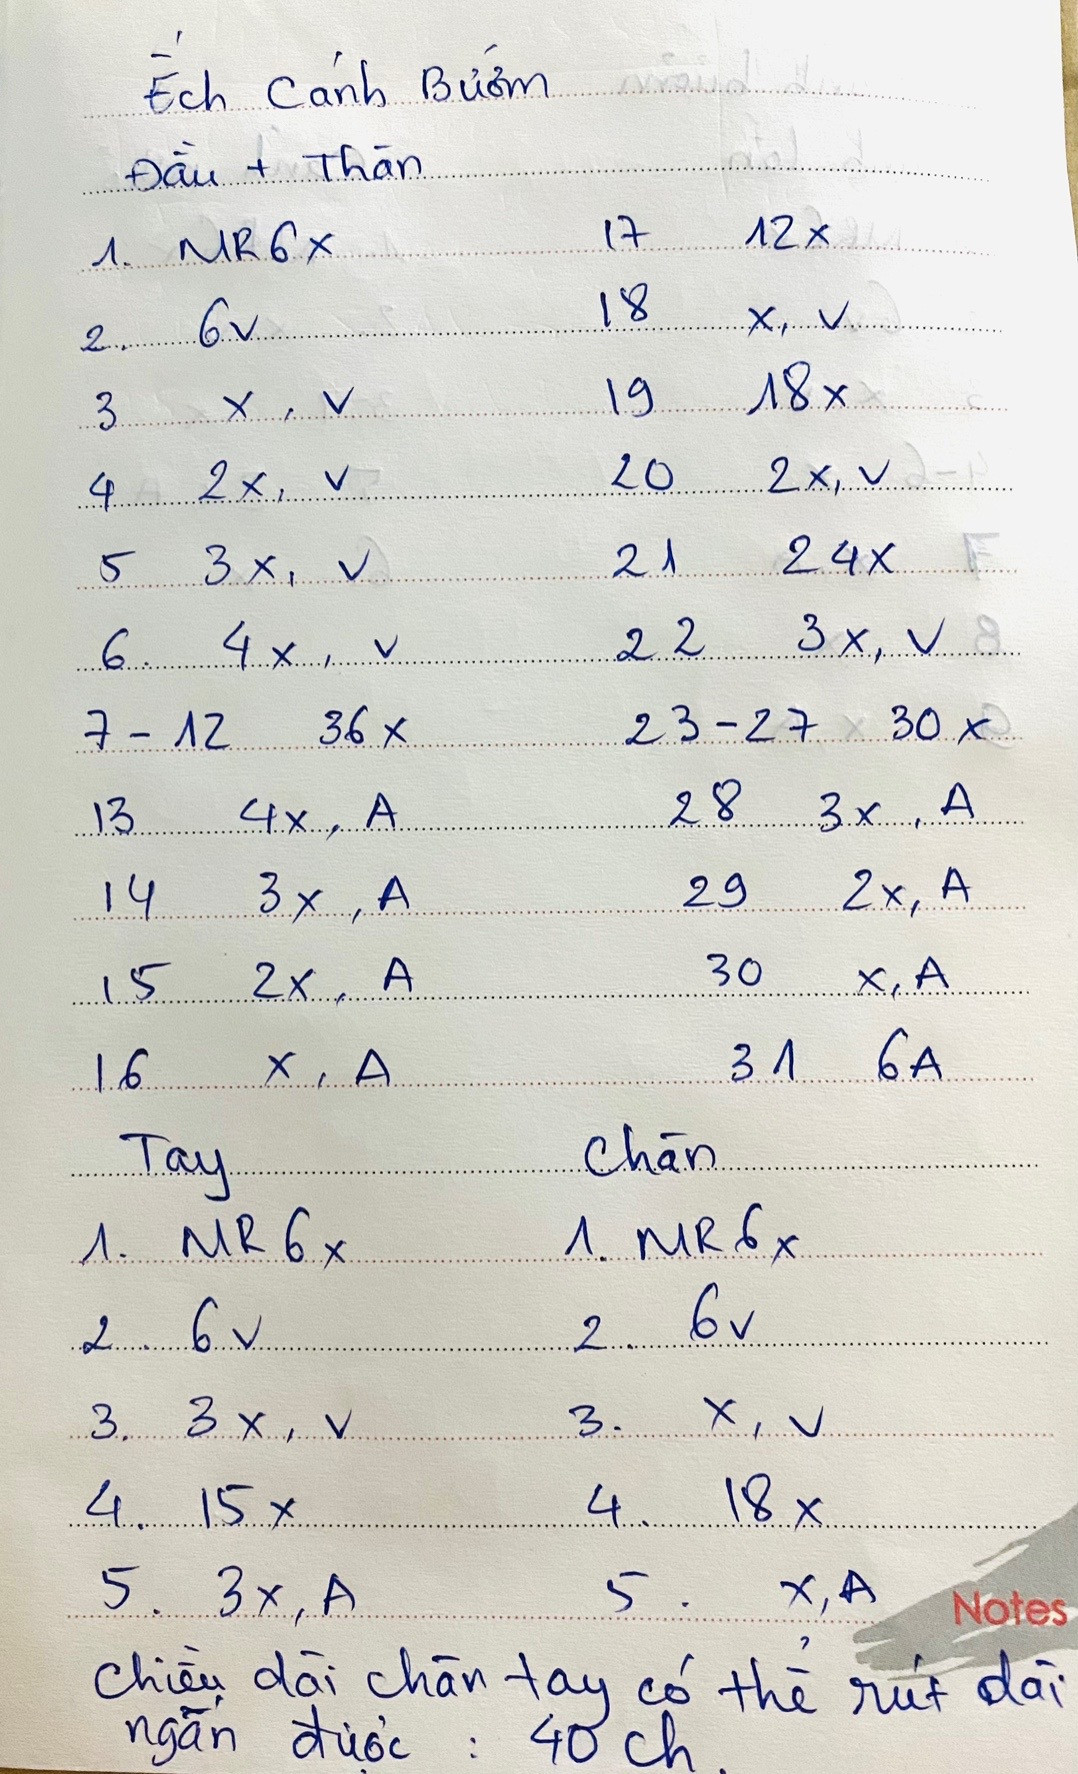 Ếch Cánh Bướm
Đầu + Thân
1. MR 6x
2. 6v
3 x, v
4 2x, v
5 3x, v
6. 4x, v
7 - 12 36x
13 4x, A
14 3x, A
15 2x, A
16 x, A
17 12x
18 x, v
19 18x
20 2x, v
21 24x
22 3x, v
23-27 30x
28 3x, A
29 2x, A
30 x, A
31 6A
Tay
1. MR 6x
2. 6v
3. 3x, v
4. 15x
5. 3x, A
Chân
1. MR 6x
2. 6v
3. x, v
4. 18x
5. x, A
Notes
Chiều dài chân tay có thể rút dài
ngắn được : 40 ch.